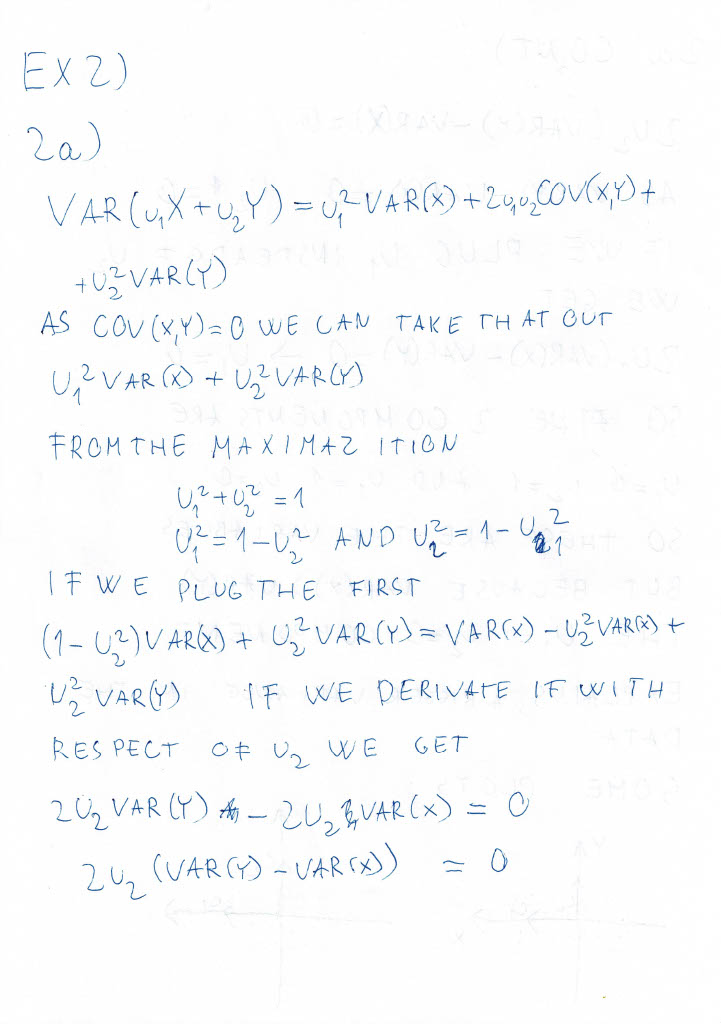 EX 2)
2a)
VAR(u₁X + u₂Y) = u₁² VAR(X) + 2u₁u₂COV(X,Y) +
+ u₂² VAR(Y)
AS COV(X,Y) = 0 WE CAN TAKE THAT OUT
u₁² VAR(X) + u₂² VAR(Y)
FROM THE MAXIMAZITION
u₁² + u₂² = 1
u₁² = 1 - u₂² AND u₂² = 1 - u₁²
IF WE PLUG THE FIRST
(1 - u₂²)VAR(X) + u₂² VAR(Y) = VAR(X) - u₂² VAR(X) +
u₂² VAR(Y) IF WE DERIVATE IF WITH
RESPECT OF u₂ WE GET
2u₂ VAR(Y) - 2u₂ VAR(X) = 0
2u₂ (VAR(Y) - VAR(X)) = 0